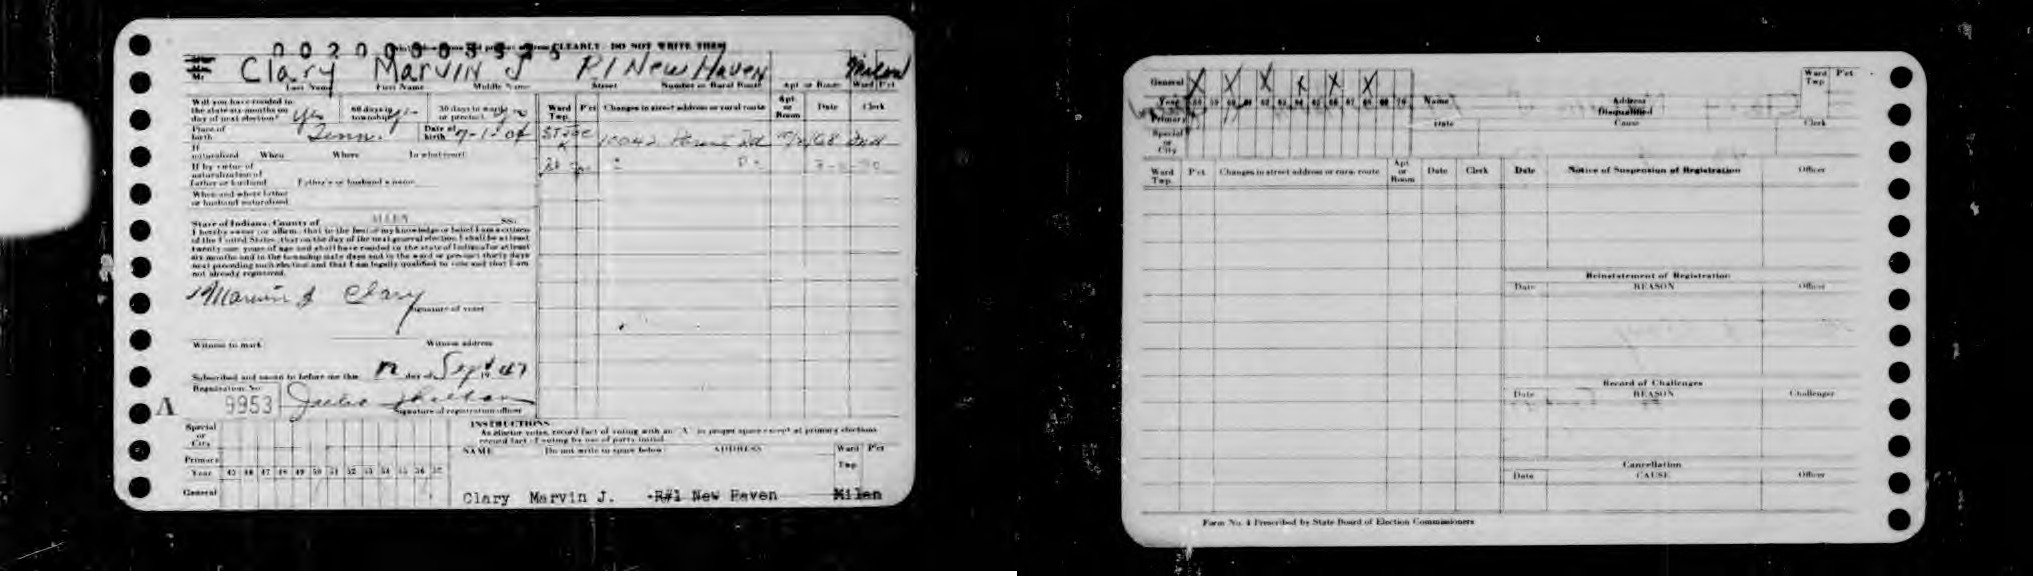 0020000
CLEARLY. DO NOT WRITE THEM
Clary Marvin J R1 New Haven Milan
Last Name First Name Middle Name Street Number or Rural Route Apt or Room Ward Pct
Will you have resided in
the state six months on
day of next election? yes 60 days in township yes 30 days in ward or precinct yes
Place of birth Tenn. Date of birth
If naturalized When Where In what court
If by virtue of
naturalization of
father or husband Father's or husband's name
When and where father
or husband naturalized
State of Indiana, County of ALLEN SS:
I hereby swear (or affirm) that to the best of my knowledge or belief I am a citizen
of the United States; that on the day of the next general election I shall be at least
twenty one years of age and shall have resided in the state of Indiana for at least
six months and in the township sixty days and in the ward or precinct thirty days
next preceding such election and that I am legally qualified to vote and that I am
not already registered.
Marvin J Clary
Signature of voter
Witness to mark Witness address
Subscribed and sworn to before me this 12 day of Sept 1947
Registration No.
9953
Signature of registration officer
A
Ward Twp. P'ct Changes in street address or rural route Apt. or Room Date Clerk
10042
Special or City
Primary
Year 45 46 47 48 49 50 51 52 53 54 55 56 57
General
INSTRUCTIONS
As elector votes, record fact of voting with an "X" in proper space except at primary elections
record fact of voting by use of party initial.
NAME Do not write in space below ADDRESS Ward P'ct
Twp.
Clary Marvin J. R#1 New Haven Milan
General X X X X X X
Year 58 59 60 61 62 63 64 65 66 67 68 69 70
Primary
Special or City
Name Address Ward P'ct
Twp
Disqualified
Date Cause Clerk
Ward Twp. P'ct Changes in street address or rural route Apt. or Room Date Clerk
Date Notice of Suspension of Registration Officer
Reinstatement of Registration
Date REASON Officer
Record of Challenges
Date REASON Challenger
Cancellation
Date CAUSE Officer
Form No. 4 Prescribed by State Board of Election Commissioners